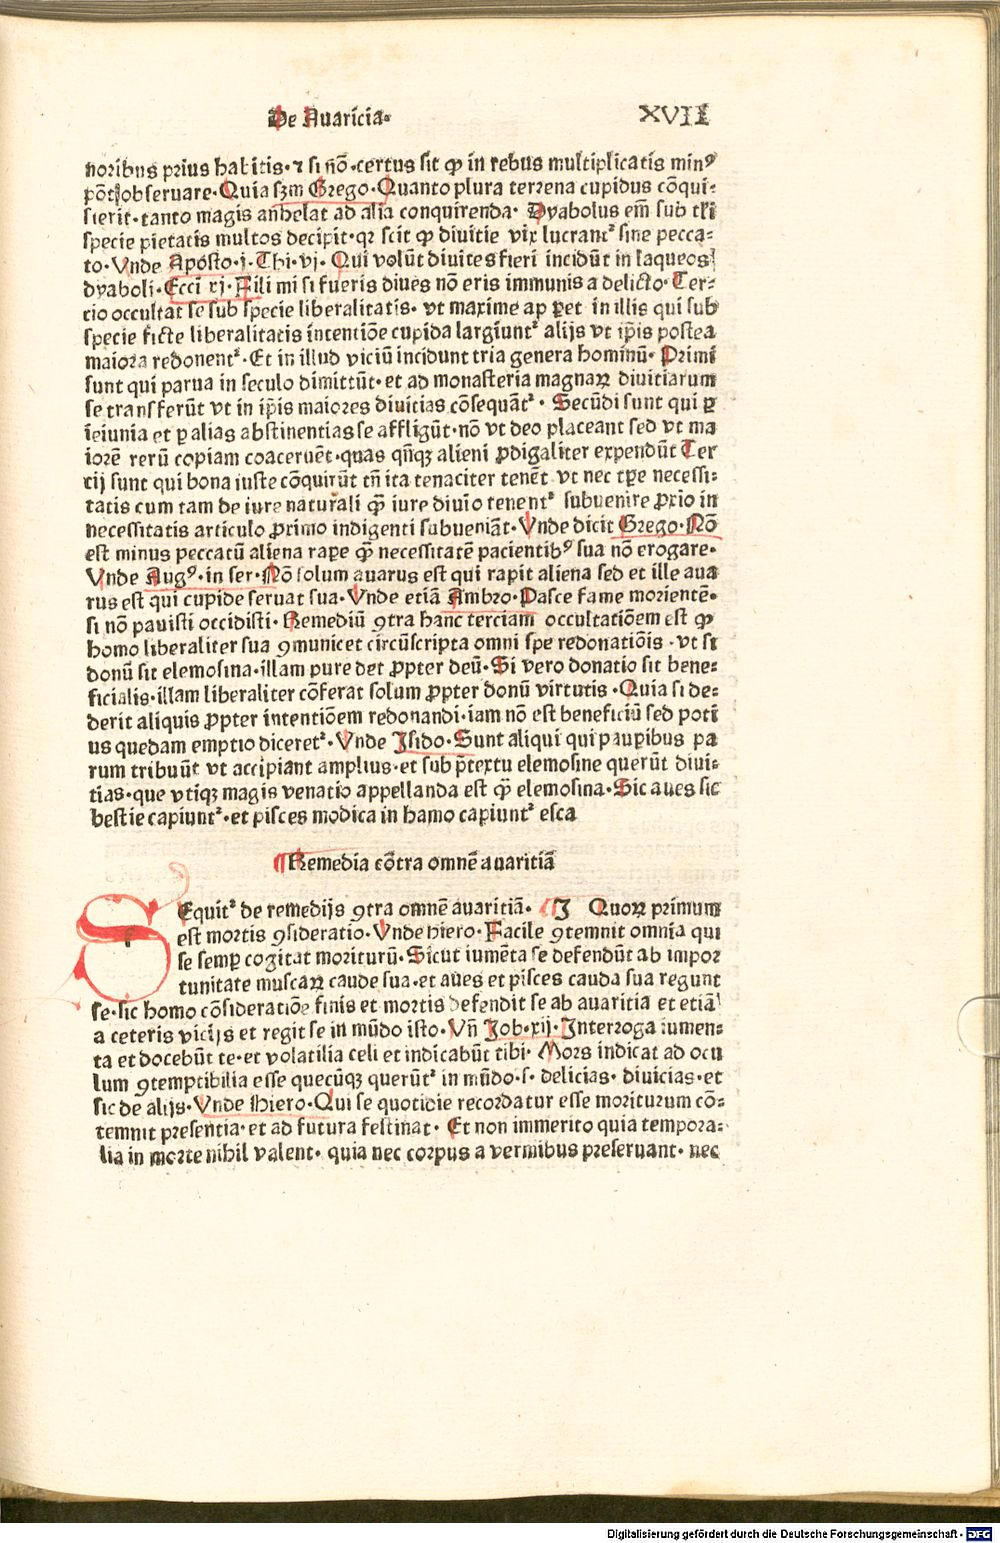 De Auaricia.
XVII
noribus prius habitis. ⁊ si nõ .certus sit ꝙ in rebus multiplicatis minꝰ
põt obseruare. Quia szm Grego. Quanto plura terrena cupidus cõqui-
sierit. tanto magis anhelat ad alia conquirenda. Dyabolus em̃ sub tłi
specie pietatis multos decipit. qꝛ scit ꝙ diuitie vix lucrantᷣ sine pecca-
to. Vnde Aposto. j. Thi. vj. Qui volũt diuites fieri incidũt in laqueos
dyaboli. Ecci xj. Fili mi si fueris diues nõ eris immunis a delicto. Ter-
cio occultat se sub specie liberalitatis. vt maxime ap ꝑet in illis qui sub
specie ficte liberalitatis intentiõe cupida largiuntᷣ alijs vt ip̃is postea
maiora redonentᷣ. Et in illud viciũ incidunt tria genera hominũ. Primi
sunt qui parua in seculo dimittũt. et ad monasteria magnaꝝ diuitiarum
se transferũt vt in ip̃is maiores diuitias cõsequãtᷣ. Secũdi sunt qui ꝑ
ieiunia et ꝑ alias abstinentias se affligũt. nõ vt deo placeant sed vt ma
iorẽ rerũ copiam coaceruẽt. quas qñqꝫ alieni ꝓdigaliter expendũt Ter
cij sunt qui bona iuste cõquirũt tñ ita tenaciter tenẽt vt nec tꝑe necessi-
tatis cum tam de iure naturali ꝙ̃ iure diuĩo tenentᷣ subuenire ꝓxio in
necessitatis articulo ꝓrimo indigenti subueniãt. Vnde dicit Grego. Nõ
est minus peccatũ aliena raꝑe ꝙ̃ necessitatẽ pacientibꝰ sua nõ erogare.
Vnde Augꝰ. in ser. Nõ solum auarus est qui rapit aliena sed et ille aua
rus est qui cupide seruat sua. Vnde etiã Ambro. Pasce fame morientẽ.
si nõ pauisti occidisti. Remediũ ꝯtra hanc terciam occultatiõem est ꝙ
homo liberaliter sua ꝯmunicet circũscripta omni spe redonatiõis . vt si
donũ sit elemosina. illam pure det ꝓpter deũ. Si vero donatio sit bene-
ficialis. illam liberaliter cõferat solum ꝓpter donũ virtutis . Quia si de-
derit aliquis ꝓpter intentiõem redonandi. iam nõ est beneficiũ sed poti
us quedam emptio diceretᷣ. Vnde Isido. Sunt aliqui qui pauꝑibus pa
rum tribuũt vt accipiant amplius. et sub p̃textu elemosine querũt diui-
tias. que vtiqꝫ magis venatio appellanda est ꝙ̃ elemosina. Sic aues sic
bestie capiuntᷣ. et pisces modica in hamo capiuntᷣ esca
¶ Remedia cõtra omnẽ auaritiã
SEquitᷣ de remedijs ꝯtra omnẽ auaritiã. ¶ I Quoꝝ primum
est mortis ꝯsideratio. Vnde hiero. Facile ꝯtemnit omnia qui
se semꝑ cogitat moriturũ. Sicut iumẽta se defendũt ab impor
tunitate muscaꝝ caude sua. et aues et pisces cauda sua regunt
se. sic homo cõsideratiõe finis et mortis defendit se ab auaritia et etiã
a ceteris vicijs et regit se in mũdo isto. Vñ Job. xij. Interroga iumen-
ta et docebũt te. et volatilia celi et indicabũt tibi. Mors indicat ad ocu
lum ꝯtemptibilia esse quecũqꝫ querũtᷣ in mũdo .s. delicias. diuicias. et
sic de alijs. Vnde Hiero. Qui se quotidie recordatur esse moriturum cõ-
temnit presentia. et ad futura festinat. Et non immerito quia tempora-
lia in morte nihil valent. quia nec corpus a vermibus preseruant. nec
Digitalisierung gefördert durch die Deutsche Forschungsgemeinschaft - DFG